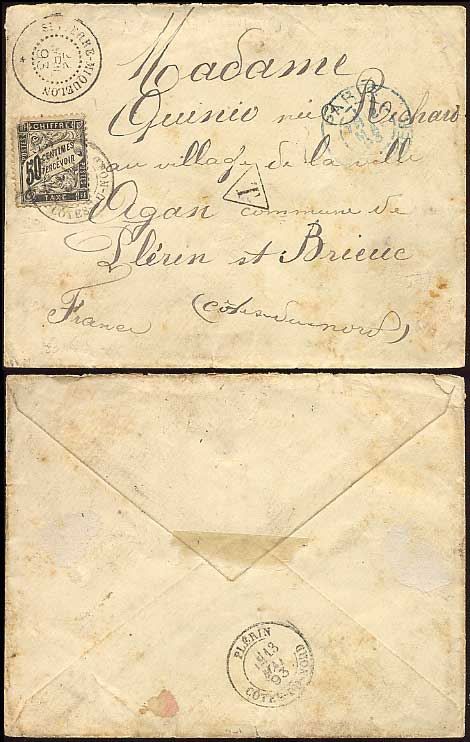 ST PIERRE-MIQUELON
93
Madame
Quinio née Richard
au village de la ville
Agan commune de
Plérin st Brieuc
France (côtes du nord)
CHIFFRE
50 CENTIMES
À PERCEVOIR
TAXE
T
PARIS
PLÉRIN
13
MAI
93
CÔTES-DU-NORD